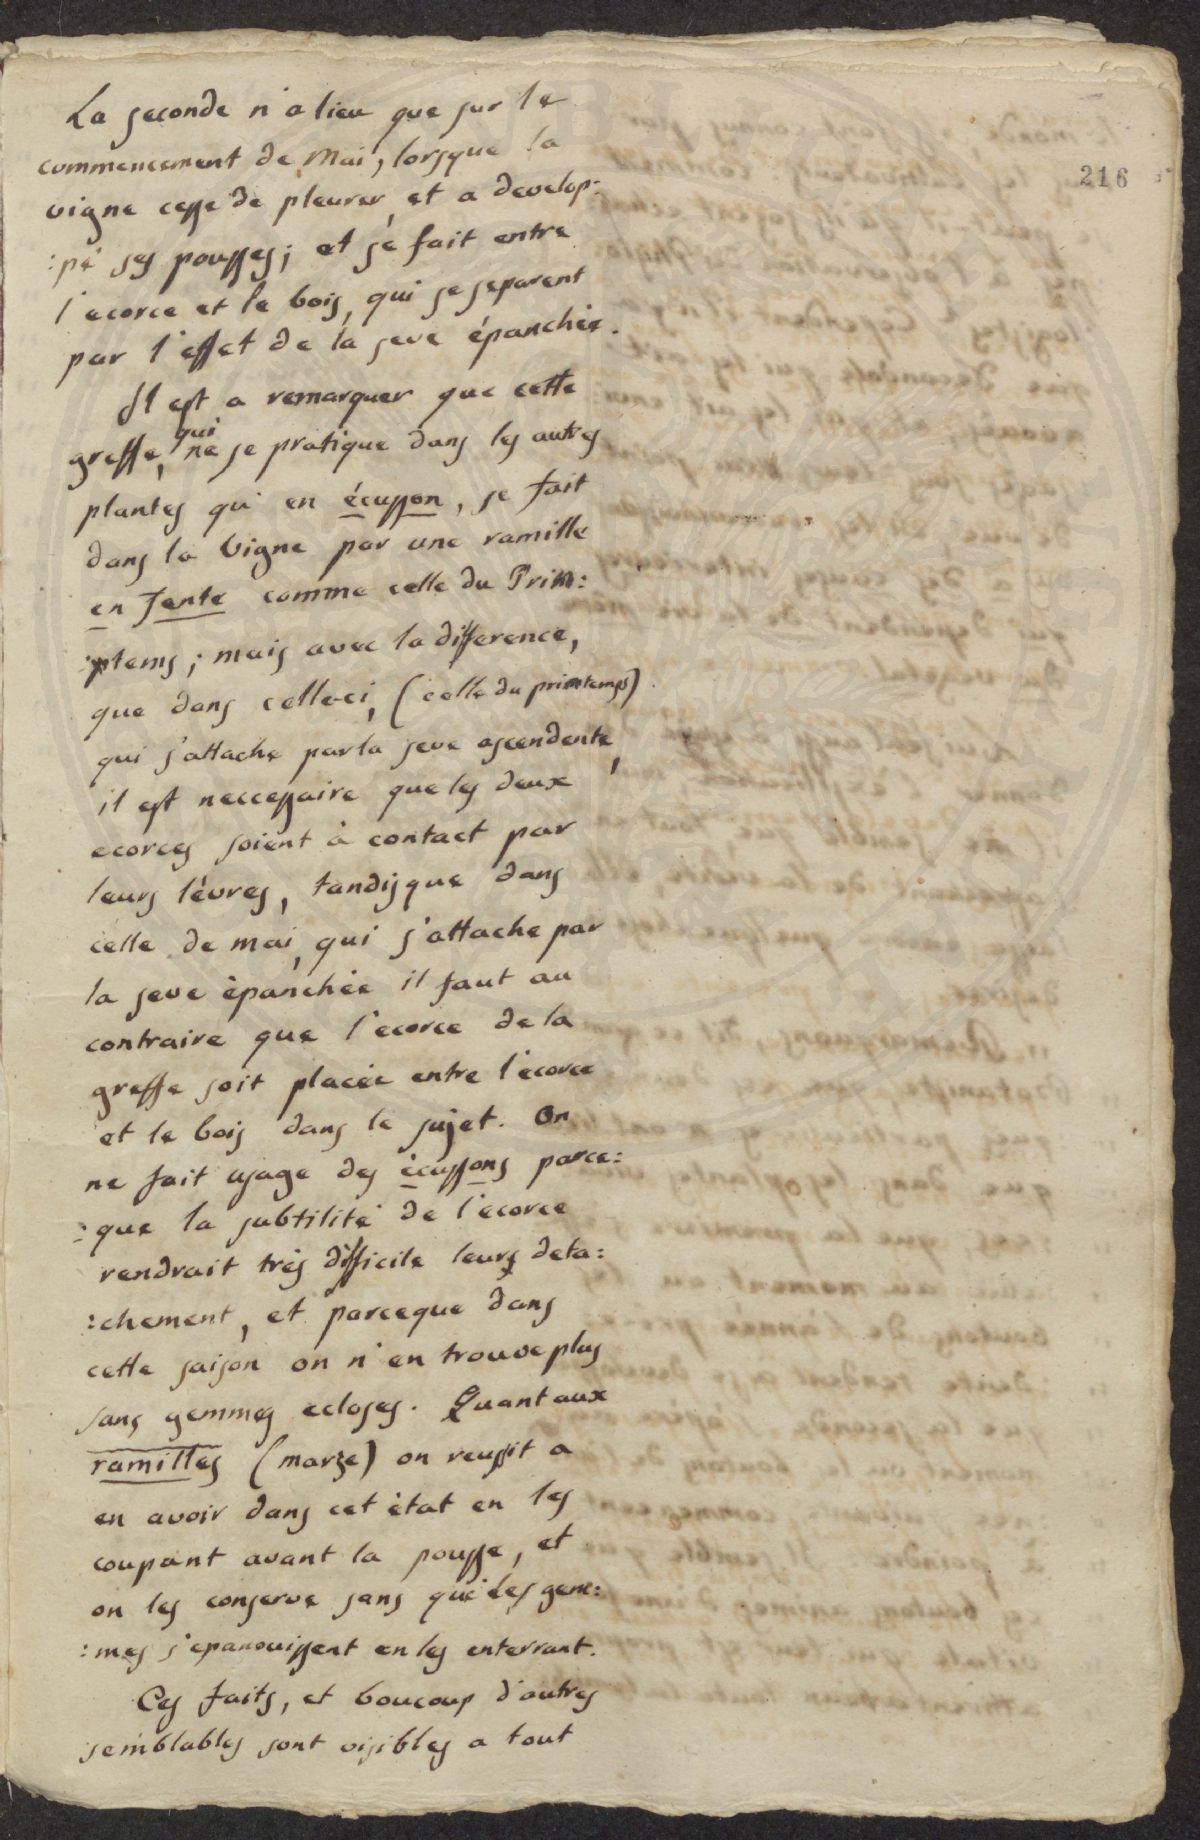 216
La seconde n'a lieu que sur le
commencement de Mai, lorsque la
vigne cesse de pleurer, et a develop:
:pé ses pousses; et se fait entre
l'ecorce et le bois, qui se separent
par l'effet de la seve épanchée.
Il est a remarquer que cette
greffe, qui ne se pratique dans les autres
plantes qu'en écusson, se fait
dans la vigne par une ramille
en fente comme celle du Prin:
:ptems; mais avec la difference,
que dans celle-ci, (celle du printemps)
qui s'attache par la seve ascendente,
il est neccessaire que les deux
ecorces soient à contact par
leurs lèvres, tandisque dans
celle de mai, qui s'attache par
la seve èpanchée il faut au
contraire que l'ecorce de la
greffe soit placée entre l'ecorce
et le bois dans le sujet. On
ne fait usage des ècussons parce:
:que la subtilité de l'ecorce
rendrait très difficile leurs deta:
:chement, et parceque dans
cette saison on n'en trouve plus
sans gemmes ecloses. Quant aux
ramilles (marze) on reussit a
en avoir dans cet ètat en les
coupant avant la pousse, et
on les conserve sans que les gem:
:mes s'epanouissent en les enterrant.
Ces faits, et boucoup d'autres
semblables sont visibles a tout